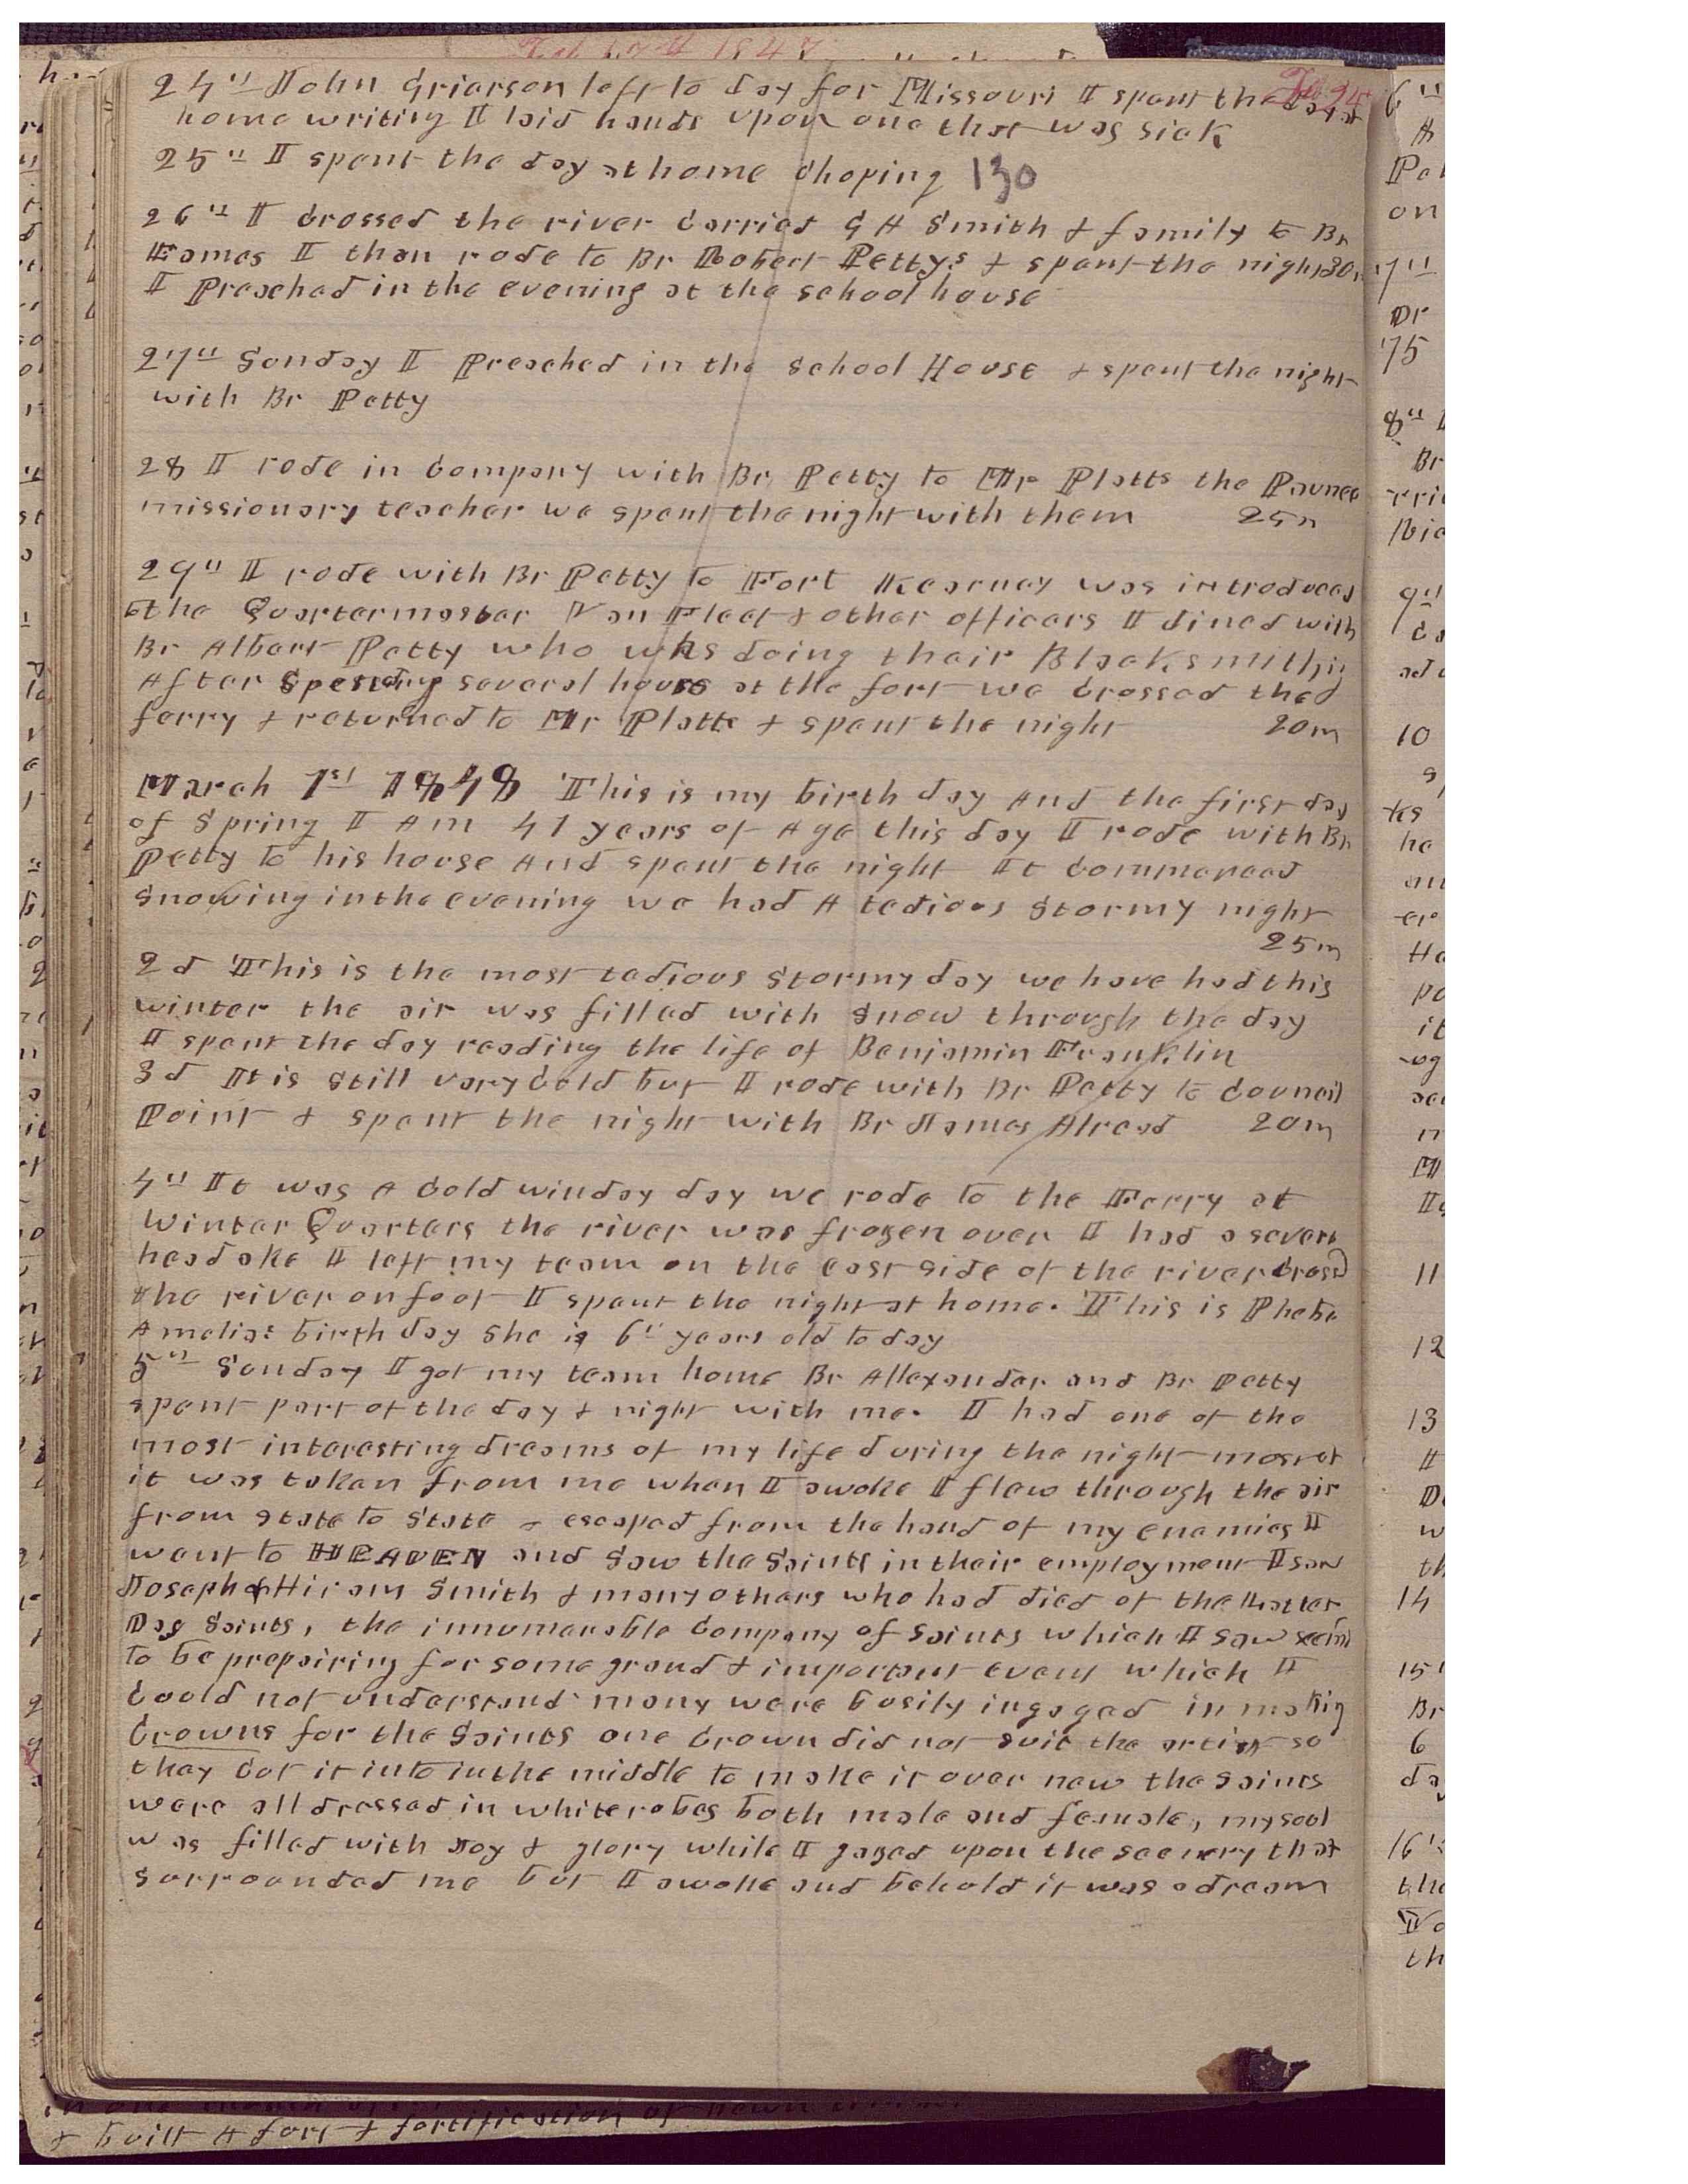 24th John Griarson left to day for Missouri I spent the day at
home writing I laid hands upon one that was sick
25th I spent the day at home choping 130
26th I crossed the river carried G A Smith & family to Br
Eames I then rode to Br Robert Pettys & spent the night 30m
I Preached in the evening at the school house
27th Sunday I Preached in the school House & spent the night
with Br Petty
28 I rode in company with Br Petty to Mr Platts the Pawnee
missionary teacher we spent the night with them 25m
29th I rode with Br Petty to Fort Kearney was introduced
to the Quartermaster Van Fleet & other officers I dined with
Br Albert Petty who was doing their Blacksmithing
After spending several hours at the fort we crossed the
ferry & returned to Mr Platts & spent the night 20m
March 1st 1848 This is my birth day And the first day
of Spring I Am 41 years of Age this day I rode with Br
Petty to his house And spent the night It commenced
snowing in the evening we had A tedious stormy night
25m
2d This is the most tedious stormy day we have had this
winter the air was filled with snow through the day
I spent the day reading the life of Benjamin Franklin
3d It is still very cold but I rode with Br Petty to Council
Point & spent the night with Br James Alread 20m
4th It was A cold winday day we rode to the Ferry at
Winter Quarters the river was frozen over I had a severe
headake I left my team on the east side of the river crossd
the river on foot I spent the night at home. This is Phebe
Amelias birth day she is 6th years old to day
5th Sunday I got my team home Br Allexander and Br Petty
spent part of the day & night with me. I had one of the
most interesting dreams of my life during the night most of
it was taken from me when I awoke I flew through the air
from state to state & escaped from the hand of my enemies I
went to HEAVEN and saw the Saints in their employment I saw
Joseph & Hiram Smith & many others who had died of the Latter
Day Saints, the innumerable company of saints which I saw seemd
to be prepairing for some grand & important event which I
could not understand many were busily ingaged in making
Crowns for the Saints one crown did not suit the artist so
they cut it into in the middle to make it over new the saints
were all dressed in white robes both male and female, my soul
was filled with Joy & glory while I gazed upon the scenery that
surrounded me but I awoke and behold it was a dream
& built A fort & fortification of